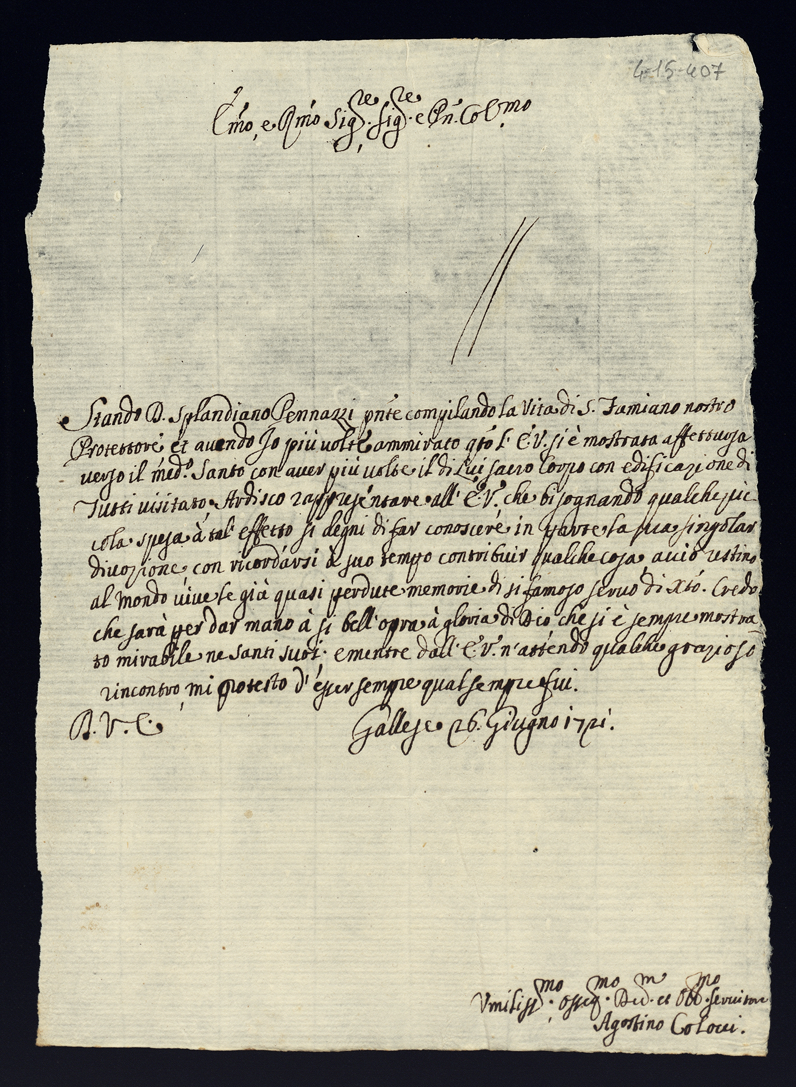 4-15-407
Emo, e Rmo Sig.re Sig.re e Pñ. Col.mo
Stando D. Splandiano Pennazzi pñte compilando la Vita di S. Famiano nostro
Protettore et avendo Io più volte ammirato qto l'E.V. si è mostrata affettuosa
verso il med.o Santo con aver più volte il di Lui sacro Corpo con edificazione di
Tutti visitato. Ardisco rappresentare all'E.V. che bisognando qualche pic
cola spesa à tal'effetto si degni di far conoscere in parte la sua singolar
divozione con ricordarsi à suo tempo contribuir qualche cosa acciò restino
al Mondo vive le già quasi perdute memorie di si famoso servo di Xtó. Credo
che sarà per dar mano à si bell'opra à gloria di Dio che si è sempre mostra
to mirabile ne Santi suoi. e mentre dall'E.V. n'atténdo qualche grazioso
rincontro, mi protesto d'esser sempre qual sempre fui.
D. V. E. Gallese 26. Giugno 1721.
Vmiliss.mo osseq.mo Dev.m et Obb.mo servitore
Agostino Colocci.